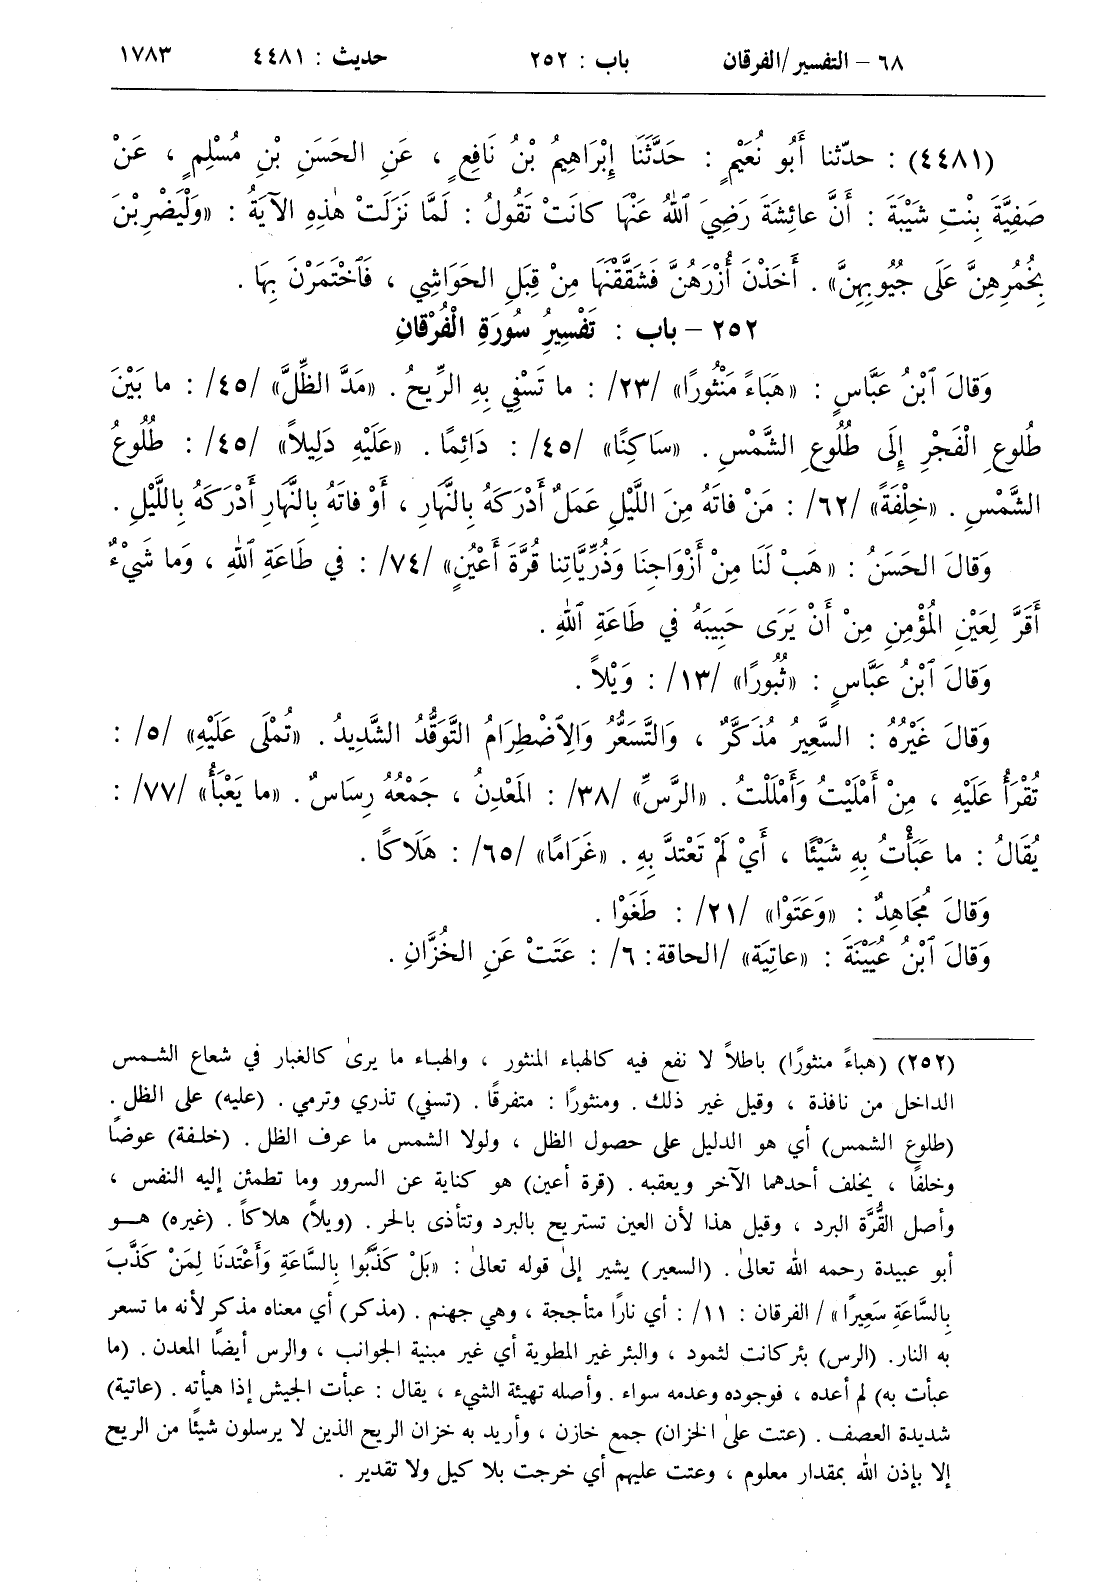 ٦٨ – التفسير/الفرقان باب : ٢٥٢ حديث : ٤٤٨١ ١٧٨٣
(٤٤٨١) : حدّثنا أَبُو نُعَيْمٍ : حَدَّثَنَا إِبْرَاهِيمُ بْنُ نَافِعٍ ، عَنِ الحَسَنِ بْنِ مُسْلِمٍ ، عَنْ
صَفِيَّةَ بِنْتِ شَيْبَةَ : أَنَّ عائِشَةَ رَضِيَ ٱللهُ عَنْهَا كانَتْ تَقُولُ : لَمَّا نَزَلَتْ هٰذِهِ الآيَةُ : «وَلْيَضْرِبْنَ
بِخُمُرِهِنَّ عَلَى جُيُوبِهِنَّ» . أَخَذْنَ أُزْرَهُنَّ فَشَقَّقْنَهَا مِنْ قِبَلِ الحَوَاشِي ، فَٱخْتَمَرْنَ بِهَا .
٢٥٢ – باب : تَفْسِيرُ سُورَةِ الْفُرْقانِ
وَقالَ ٱبْنُ عَبَّاسٍ : «هَبَاءً مَنْثُورًا» /٢٣/ : ما تَسْفِي بِهِ الرِّيحُ . «مَدَّ الظِّلَّ» /٤٥/ : ما بَيْنَ
طُلُوعِ الْفَجْرِ إِلَى طُلُوعِ الشَّمْسِ . «سَاكِنًا» /٤٥/ : دَائِمًا . «عَلَيْهِ دَلِيلاً» /٤٥/ : طُلُوعُ
الشَّمْسِ . «خِلْفَةً» /٦٢/ : مَنْ فاتَهُ مِنَ اللَّيْلِ عَمَلٌ أَدْرَكَهُ بِالنَّهَارِ ، أَوْ فاتَهُ بِالنَّهَارِ أَدْرَكَهُ بِاللَّيْلِ .
وَقالَ الحَسَنُ : «هَبْ لَنَا مِنْ أَزْوَاجِنَا وَذُرِّيَّاتِنا قُرَّةَ أَعْيُنٍ» /٧٤/ : في طَاعَةِ ٱللهِ ، وَما شَيْءٌ
أَقَرَّ لِعَيْنِ المُؤْمِنِ مِنْ أَنْ يَرَى حَبِيبَهُ في طَاعَةِ ٱللهِ .
وَقالَ ٱبْنُ عَبَّاسٍ : «ثُبُورًا» /١٣/ : وَيْلاً .
وَقالَ غَيْرُهُ : السَّعِيرُ مُذَكَّرٌ ، وَالتَّسَعُّرُ وَالِٱضْطِرَامُ التَّوَقُّدُ الشَّدِيدُ . «تُمْلَى عَلَيْهِ» /٥/ :
تُقْرَأُ عَلَيْهِ ، مِنْ أَمْلَيْتُ وَأَمْلَلْتُ . «الرَّسِّ» /٣٨/ : المَعْدِنُ ، جَمْعُهُ رِسَاسٌ . «ما يَعْبَأُ» /٧٧/ :
يُقَالُ : ما عَبَأْتُ بِهِ شَيْئًا ، أَيْ لَمْ تَعْتدَّ بِهِ . «غَرَامًا» /٦٥/ : هَلَاكًا .
وَقالَ مُجَاهِدٌ : «وَعَتَوْا» /٢١/ : طَغَوْا .
وَقالَ ٱبْنُ عُيَيْنَةَ : «عاتِيَة» /الحاقة: ٦/ : عَتَتْ عَنِ الخُزَّانِ .
(٢٥٢) (هباءً منثورًا) باطلاً لا نفع فيه كالهباء المنثور ، والهباء ما يرىٰ كالغبار في شعاع الشمس
الداخل من نافذة ، وقيل غير ذلك . ومنثورًا : متفرقًا . (تسفي) تذري وترمي . (عليه) على الظل .
(طلوع الشمس) أي هو الدليل على حصول الظل ، ولولا الشمس ما عرف الظل . (خلفة) عوضًا
وخلفًا ، يخلف أحدهما الآخر ويعقبه . (قرة أعين) هو كناية عن السرور وما تطمئن إليه النفس ،
وأصل القُرَّة البرد ، وقيل هذا لأن العين تستريح بالبرد وتتأذى بالحر . (ويلاً) هلاكاً . (غيره) هو
أبو عبيدة رحمه الله تعالىٰ . (السعير) يشير إلىٰ قوله تعالىٰ : «بَلْ كَذَّبُوا بِالسَّاعَةِ وَأَعْتَدنَا لِمَنْ كَذَّبَ
بِالسَّاعَةِ سَعِيرًا» / الفرقان : ١١/ : أي نارًا متأججة ، وهي جهنم . (مذكر) أي معناه مذكر لأنه ما تسعر
به النار. (الرس) بئر كانت لثمود ، والبئر غير المطوية أي غير مبنية الجوانب ، والرس أيضًا المعدن . (ما
عبأت به) لم أعده ، فوجوده وعدمه سواء . وأصله تهيئة الشيء ، يقال : عبأت الجيش إذا هيأته . (عاتية)
شديدة العصف . (عتت علىٰ الخزان) جمع خازن ، وأريد به خزان الريح الذين لا يرسلون شيئًا من الريح
إلا بإذن الله بمقدار معلوم ، وعتت عليهم أي خرجت بلا كيل ولا تقدير .